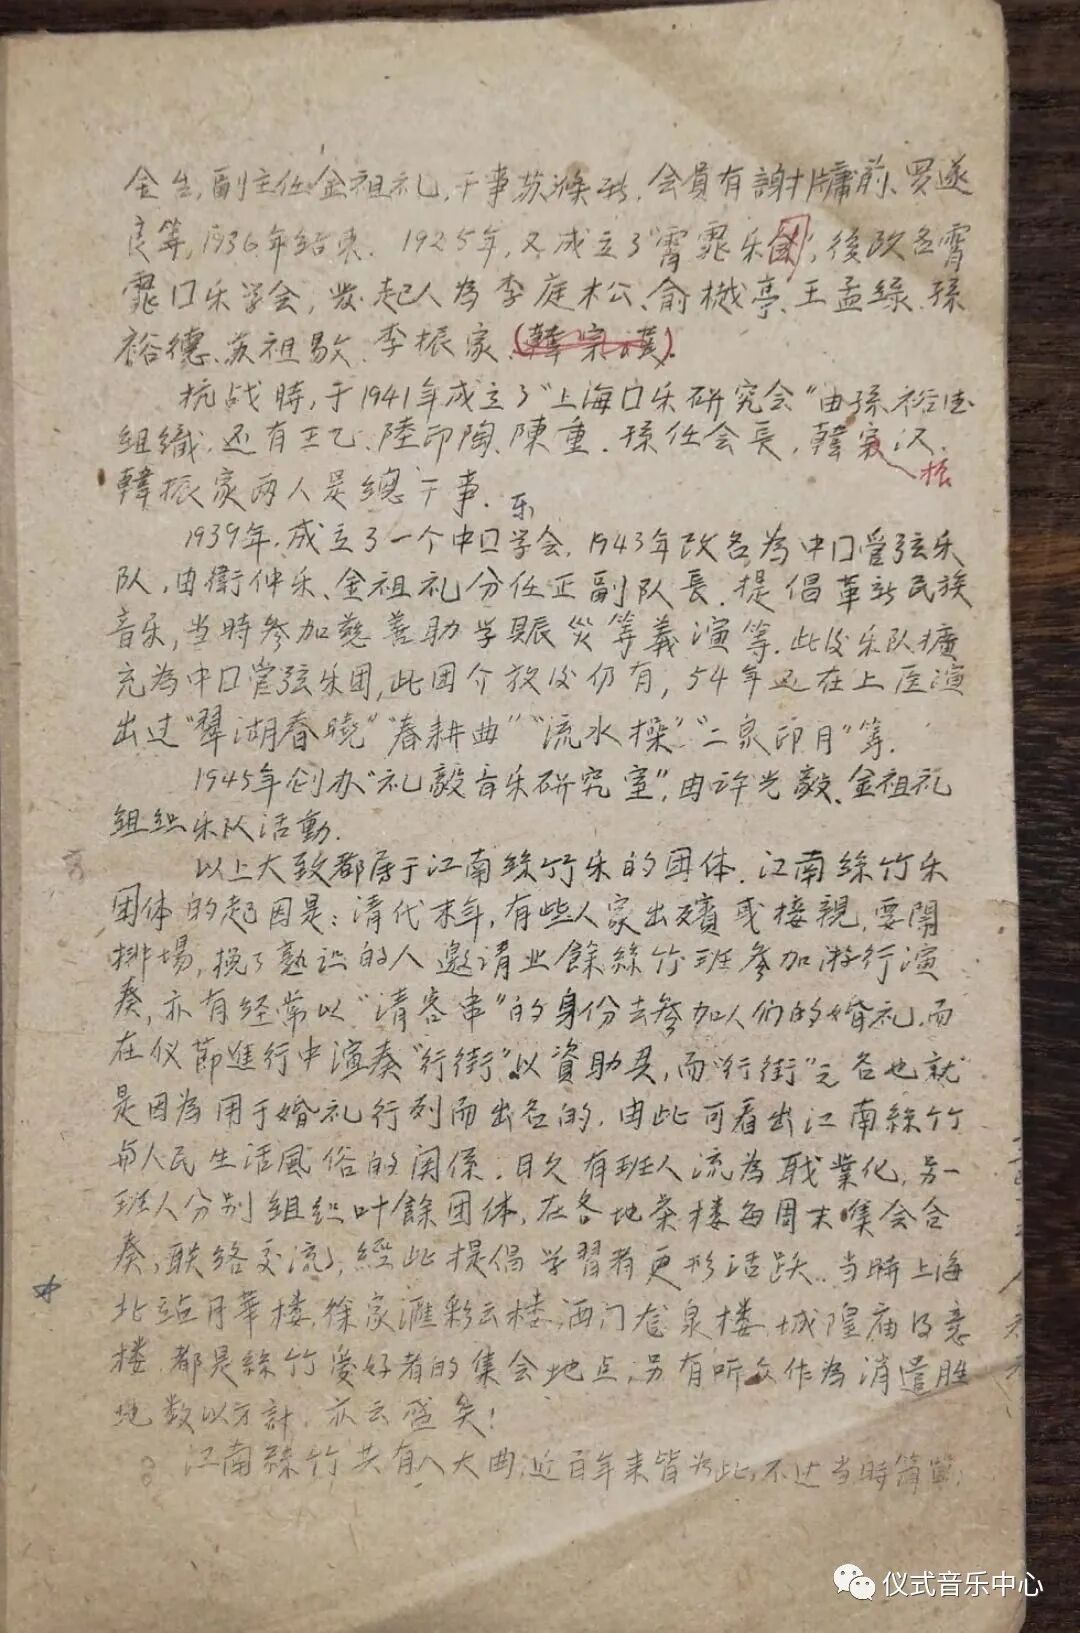 金生,副主任金祖礼,干事苏焕彩.会員有謝牖前、罗遂
良等,1936年结束. 1925年,又成立了"霄雿乐团",後改名霄
雿口乐学会,发起人為李庭松、俞樾亭、王孟绿、孫
裕德、苏祖敭、李振家、(韓宗漢).
抗战時,于1941年成立了"上海口乐研究会"由孫裕德
组織.还有王乙、陸印陶、陳重.孫任会長,韓家汉、
振
韓振家两人是總干事.
乐
1939年.成立了一个中口学会.1943年改名為中口管弦乐
队,由衛仲乐、金祖礼分任正副队長.提倡革新民族
音乐,当時参加慈善助学賑災等義演等.此後乐队擴
充為中口管弦乐团,此团介放後仍有,54年还在上医演
出过"翠湖春曉""春耕曲""流水操""二泉印月"等.
1945年创办"礼毅音乐研究室",由許光毅、金祖礼
组织乐队活動.
以上大致都属于江南絲竹乐的团体.江南絲竹乐
团体的起因是:清代末年,有些人家出殯或接親,要開
排場,挽了熟识的人邀请业餘絲竹班参加游行演
奏,亦有经常以"清客串"的身份去参加人们的婚礼.而
在仪節進行中演奏"行街"以資助興,而"行街"之名也就
是因為用于婚礼行列而出名的.由此可看出江南絲竹
与人民生活風俗的関係.日久有班人流為職業化,另一
班人分别组织叶餘团体,在各地茶楼每周末集会合
奏,联络交流,經此提倡学習者更形活跃.当時上海
北站月華楼,徐家滙彩云楼,西门龙泉楼,城隍庙得意
楼,都是絲竹愛好者的集会地点,另有听众作為消遣胜
地数以万計.亦云盛矣!
江南絲竹共有八大曲,近百年来皆为此,不过当時簡單,
仪式音乐中心